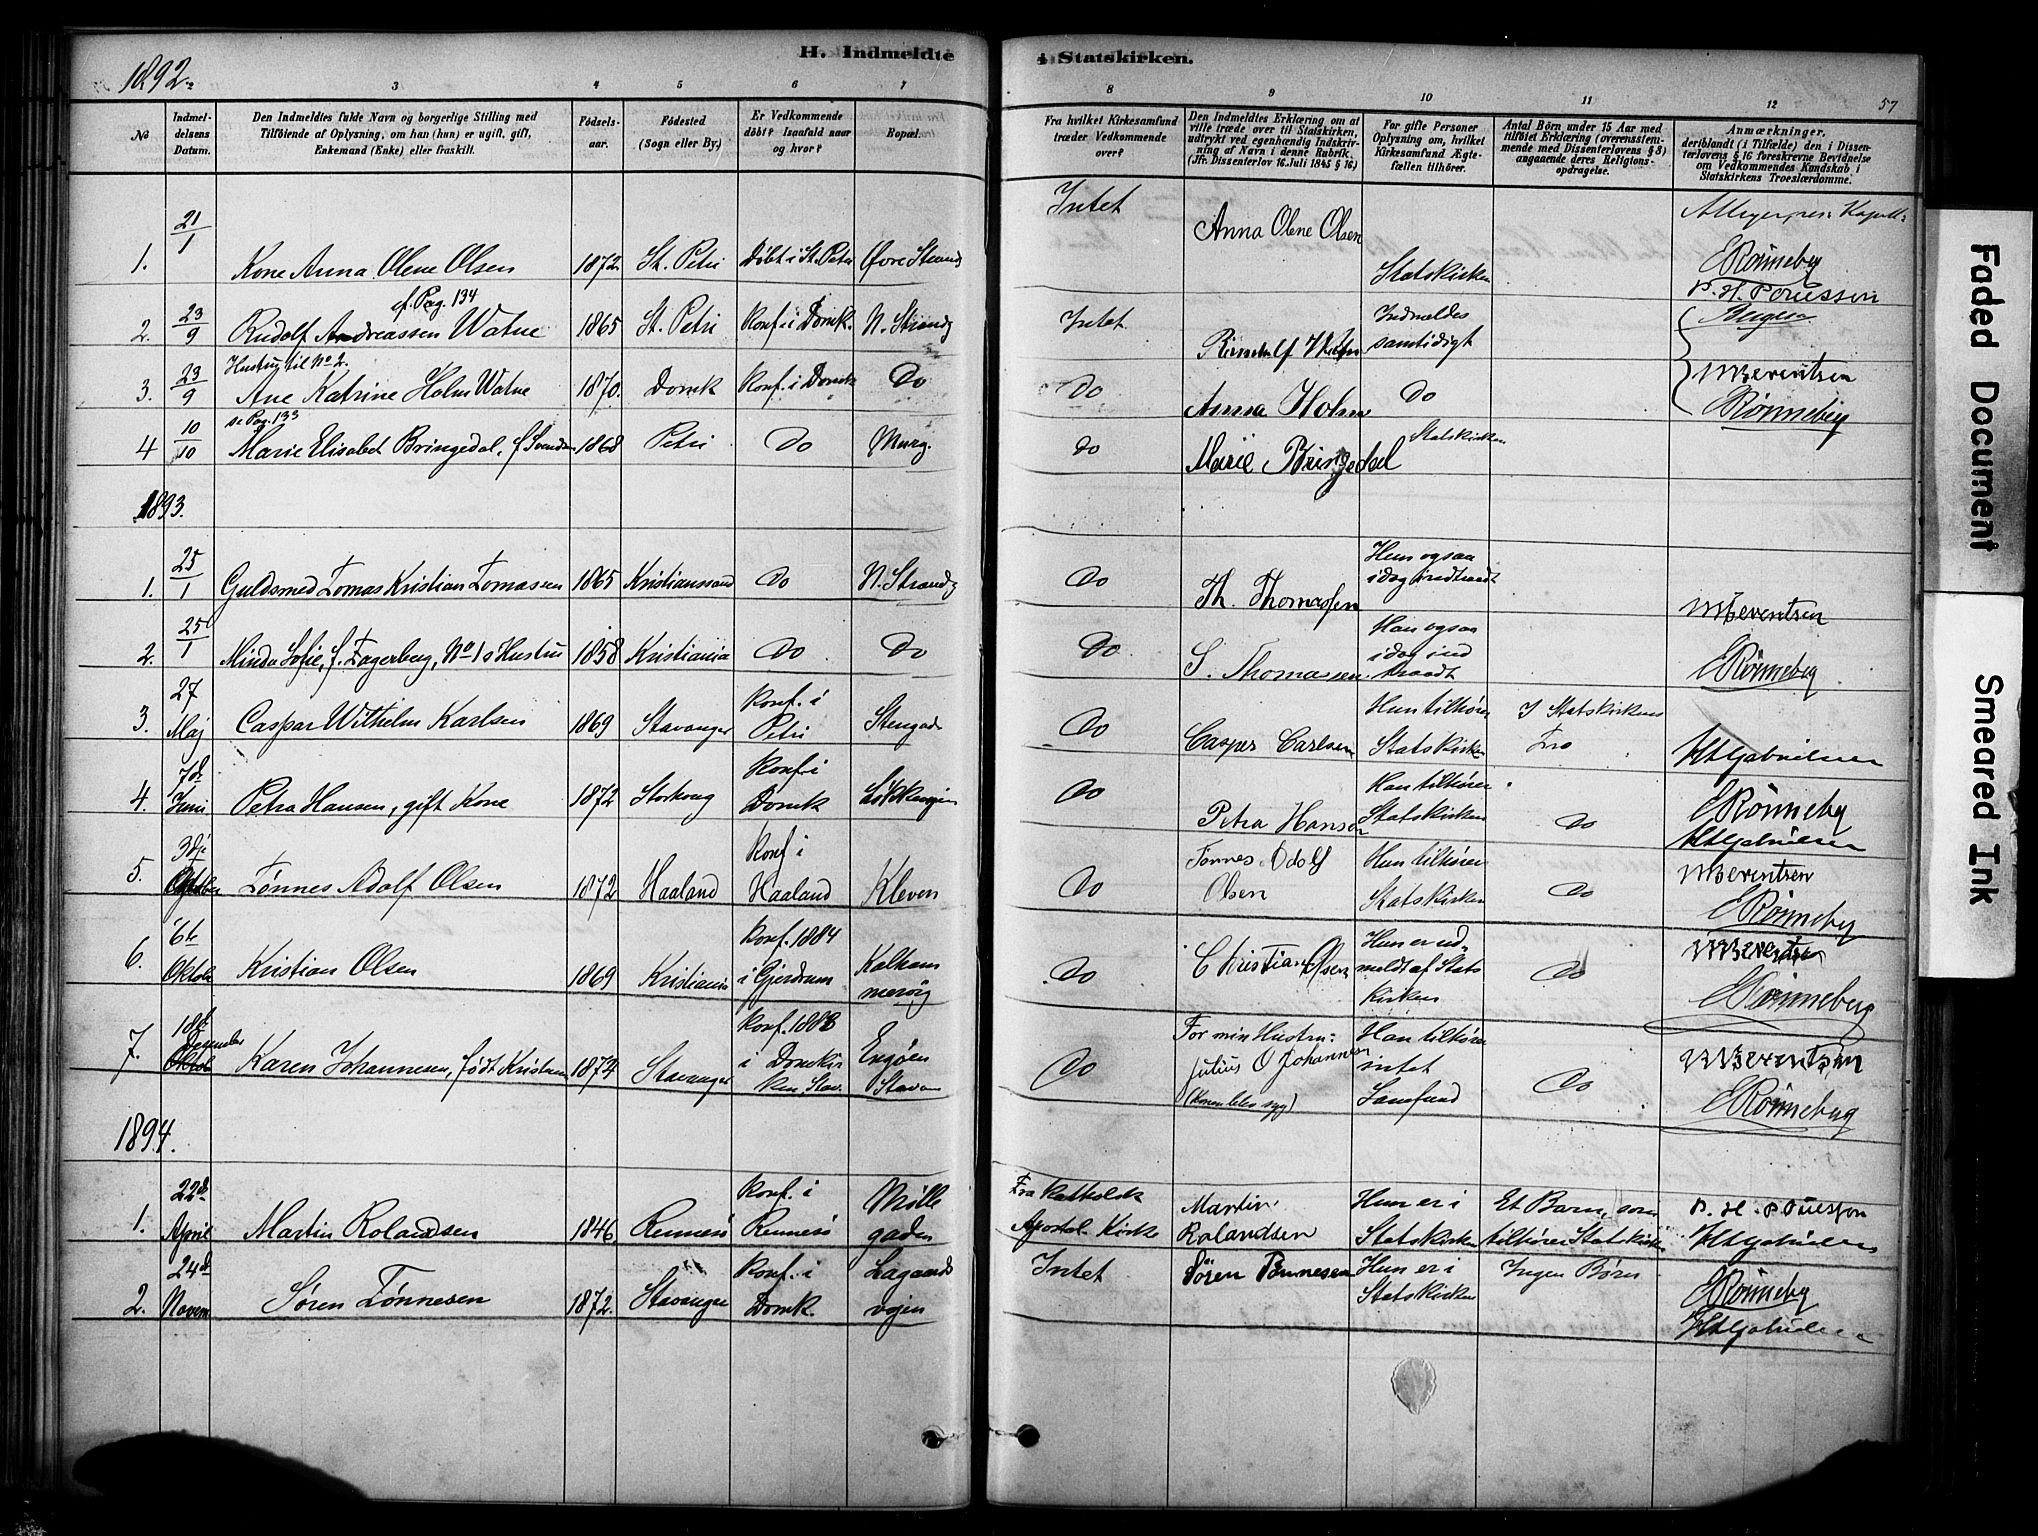 H. Indmeldte i Statskirken.
1892.
57
3 4 5 6 7 8 9 10 11 12
No
Indmel-
delsens
Datum.
Den Indmeldtes fulde Navn og borgerlige Stilling med
Tilføiende af Oplysning, om han (hun) er ugift, gift,
Enkemand (Enke) eller fraskilt.
Fødsels-
aar.
Fødested
(Sogn eller By.)
Er Vedkommende
døbt? Isaafald naar
og hvor?
Bopæl.
Fra hvilket Kirkesamfund
træder Vedkommende
over?
Den Indmeldtes Erklæring om at
ville træde over til Statskirken,
udtrykt ved egenhændig Indskriv-
ning af Navn i denne Rubrik.
(Jfr. Dissenterlov 16 Juli 1845 § 16.)
For gifte Personer
Oplysning om, hvilket
Kirkesamfund Ægte-
fællen tilhører.
Antal Børn under 15 Aar med
tilføiet Erklæring (overensstem-
mende med Dissenterlovens § 8)
angaaende deres Religions-
opdragelse.
Anmærkninger,
deriblandt (i Tilfælde) den i Dissen-
terlovens § 16 foreskrevne Bevidnelse
om Vedkommendes Kundskab i
Statskirkens Troeslærdomme.
1. 21/1 Kone Anna Olene Olsen 1872 St. Petri Døbt i St. Petri Øvre Strandg Intet Anna Olene Olsen Statskirken
ERönneberg
2. 23/9 cf. Pag. 134
Rudolf Andreassen Watne 1865 St. Petri Konf. i Domk. N. Strandg Intet Indmeldes
samtidigt
3. 23/9 Hustru til No 2.
Ane Katrine Holm Watne 1870. Domk Konf. i Domk Do Do Anna Holm Do MBerentsen
Rönneberg
4 10/10 se Pag. 133
Marie Elisabet Bringedal, f Svendsen 1868 Petri Do Murg. Do Marie Bringedal Statskirken
1893.
1. 25/1 Guldsmed Tomas Kristian Tomassen 1865 Kristianssand Do N. Strandg Do Th. Thomassen Hun ogsaa
idag indtraadt MBerentsen
2. 25/1 Minda Sofie, f. Fagerberg, No 1s Hustru 1858 Kristiania Do Do Do S. Thomassen Han ogsaa
idag ind
traadt ERönneberg
3. 27 Maj Caspar Wilhelm Karlsen 1869 Stavanger Konf. i
Petri Stengad Do Casper Carlsen Hun tilhører
Statskirken I Statskirkens
Tro HGabrielsen
4. 7de Juni Petra Hansen, gift Kone 1872 Konf. i
Domk Do Petra Hansen Han tilhører
Statskirken Do ERönneberg
HGabrielsen
5. 3dje Oktober Tønnes Adolf Olsen 1872 Haaland Konf i
Haaland Kleven Do Tønnes Adolf
Olsen Hun tilhører
Statskirken Do MBerentsen
ERönneberg
6. 6te Oktober Kristian Olsen 1869 Kristiania Konf. 1884
i Gjerdrum Kalham
merøig Do Christian Olsen Hun er ud-
meldt af Stats
Kirken Do MBerentsen
ERönneberg
7. 18de Desember
Karen Johannesen, født Kristensen 1874 Stavanger Konf. 1888
i Domkir
ken, Stav. Engøen
Stavan Do For min Hustru:
Julius O Johannesen
(Konen blev syg) Han tilhører
intet
Samfund Do MBerentsen
ERönneberg
1894.
1. 22de April Martin Rolandsen 1846 Rennesø Konf. i
Rennesø Mølle
gaden Fra Katholsk
Apostol. Kirke Martin
Rolandsen Hun er i
Statskirken Et Barn, som
tilhører Statskirken HGabrielsen
2. 24de Novem Søren Tønnesen 1872. Stavanger Konf. i
Domk. Lagaards
vejen Intet Sören Tönnesen Hun er i
Statskirken Ingen Børn ERönneberg
HGabrielsen
Faded Document
Smeared Ink